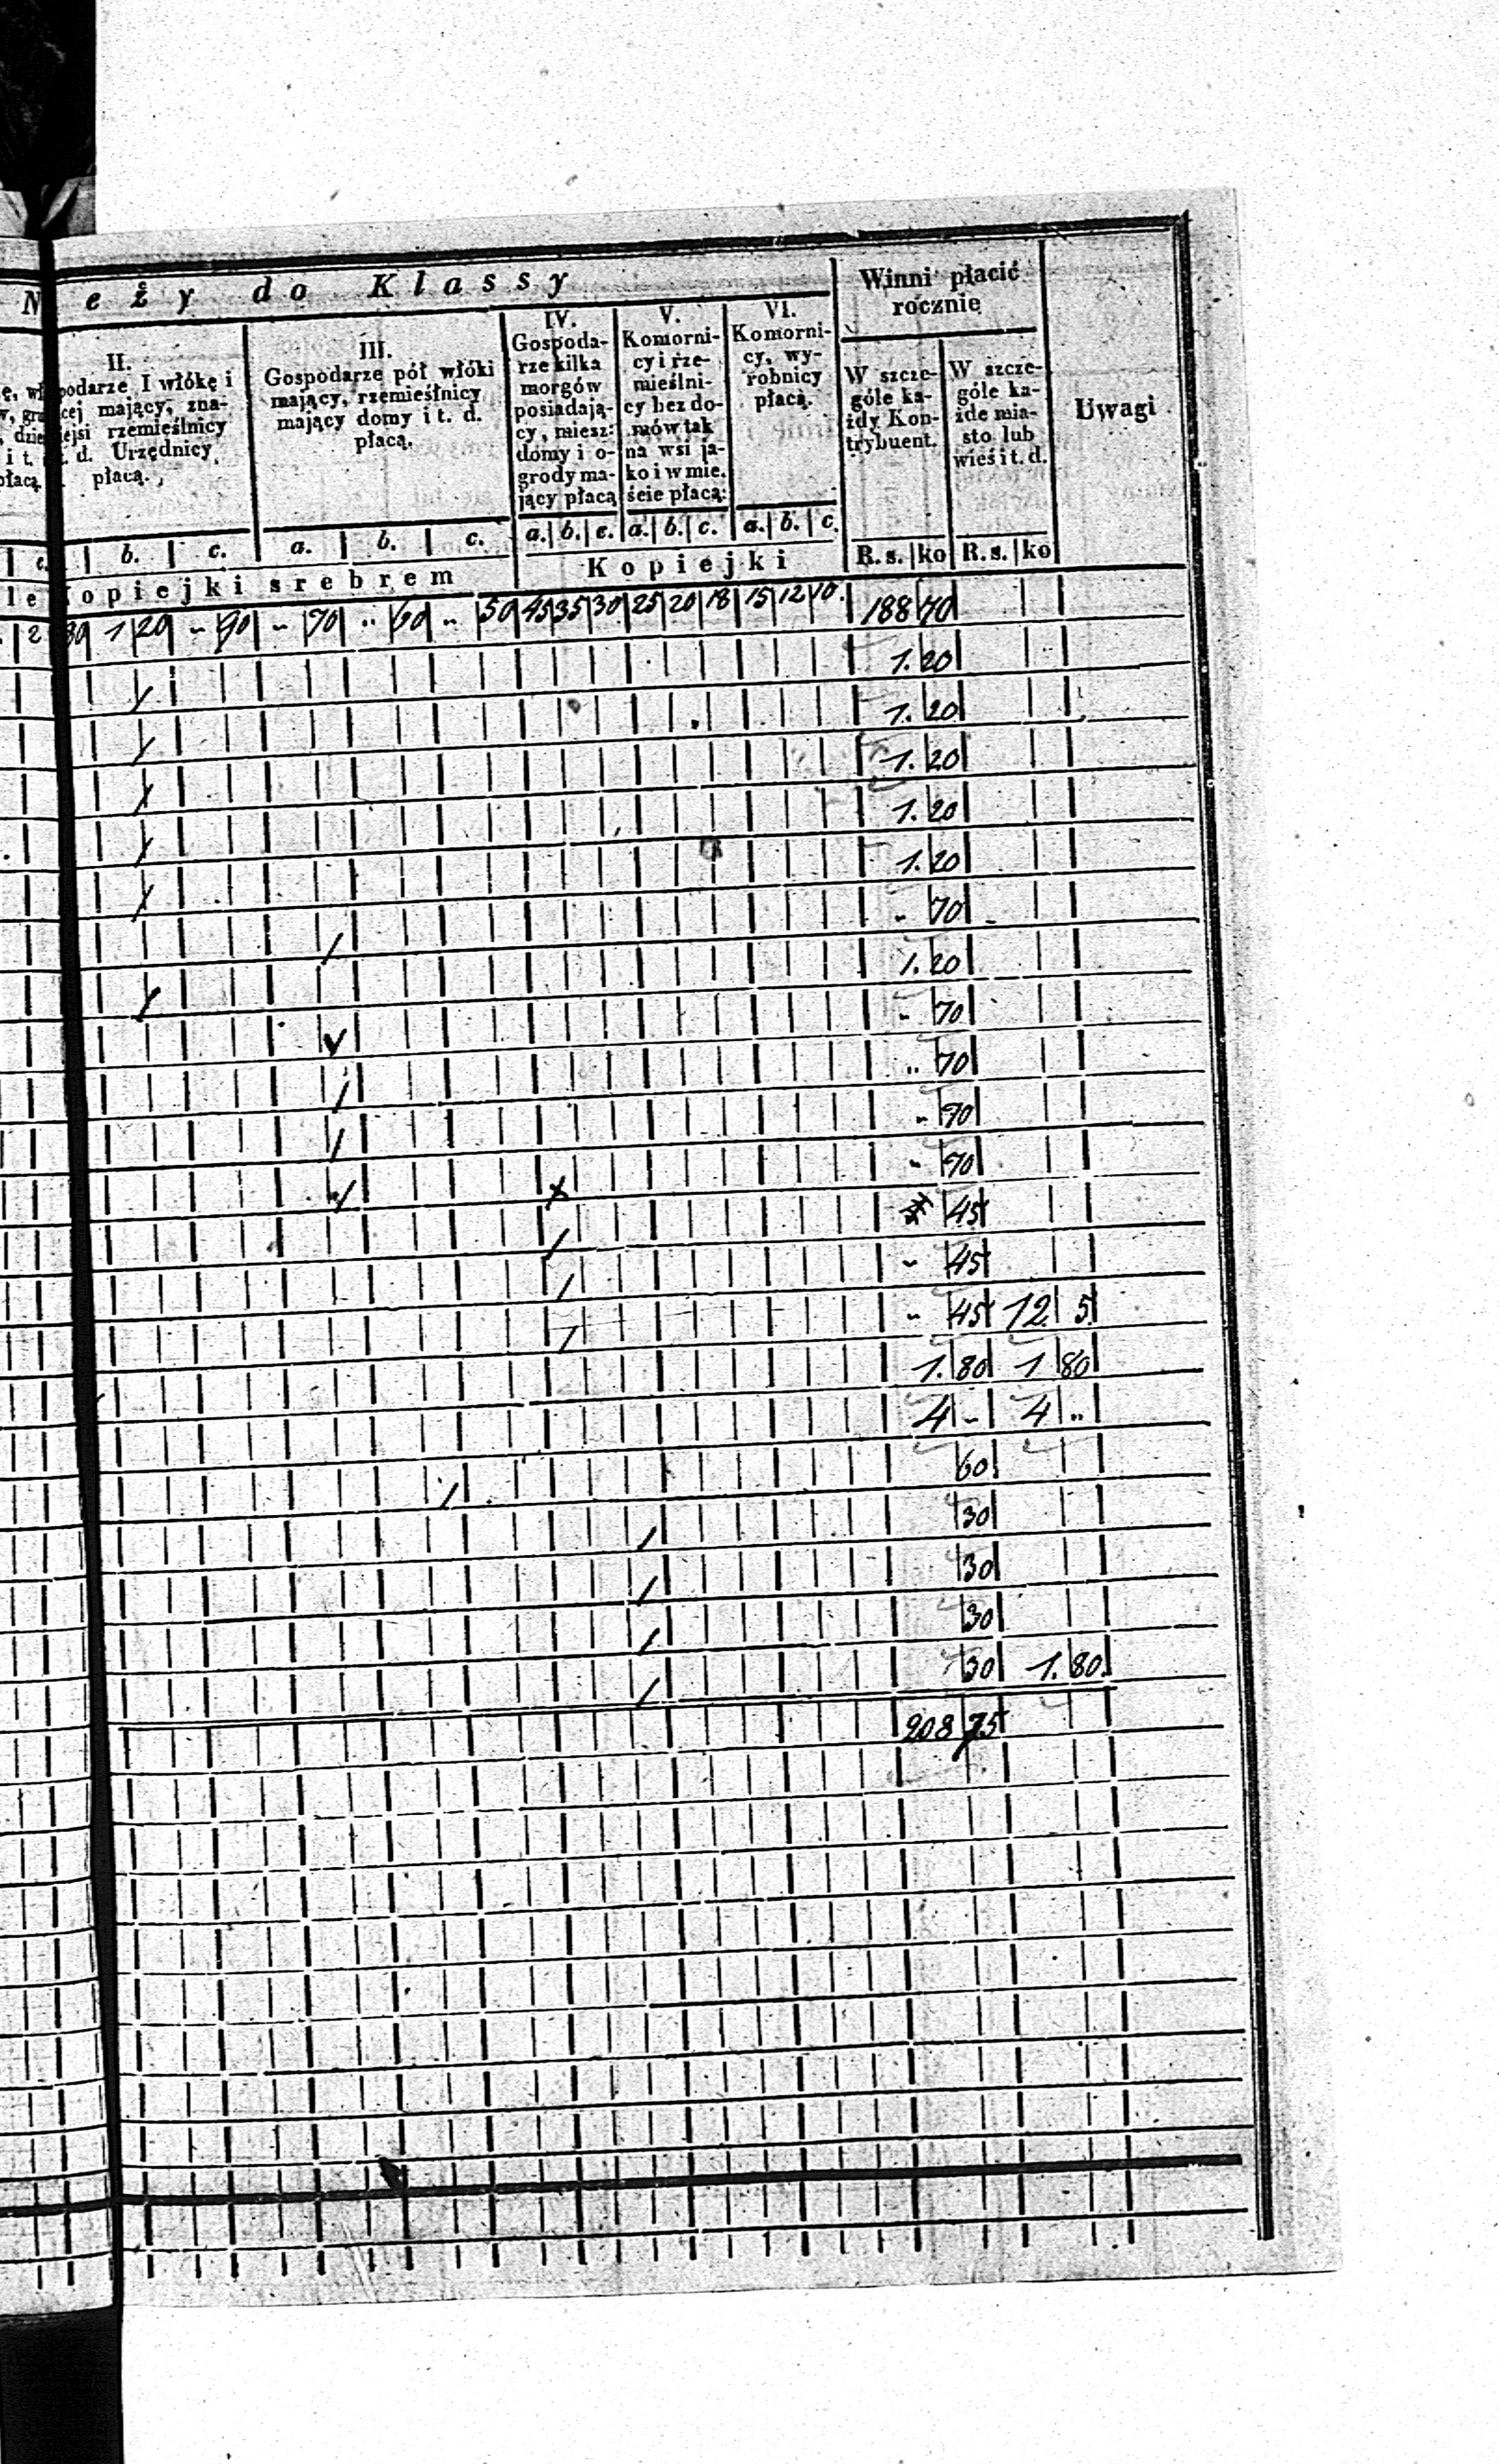 N eży do Klassy
Winni płacić
rocznie
Uwagi
II.
podarze I włókę i
cej mający, zna-
ejsi rzemieślnicy
t. d. Urzędnicy
płacą.
III.
Gospodarze pół włóki
mający, rzemieślnicy
mający domy i t. d.
płacą.
IV.
Gospoda-
rze kilka
morgów
posiadają-
cy, miesz:
domy i o-
grody ma-
jący płacą
V.
Komorni-
cy i rze-
mieślni-
cy bez do-
mów tak
na wsi ja-
ko i w mie.
ście płacą:
VI.
Komorni-
cy, wy-
robnicy
płacą.
W szcze-
góle ka-
żdy Kon-
trybuent.
W szcze-
góle ka-
żde mia-
sto lub
wieś i t. d.
c. b. c. a. b. c. a. b. c. a. b. c. a. b. c. R. s. ko R. s. ko
le opiejki srebrem Kopiejki
2 80 1 20 - 90 - 70 .. 60 .. 50 45 35 30 25 20 18 15 12 10. 188 70
/ 1. 20
/ 1. 20
/ 1. 20
/ 1. 20
/ 1. 20
/ - 70
/ 1. 20
v - 70
/ .. 70
/ - 70
/ x - 70
/ 45
/ - 45
/ - 45 12 5
1. 80 1 80
4 - 4 ..
/ 60
/ 30
/ 30
/ 30
/ 30 1. 80
208 75